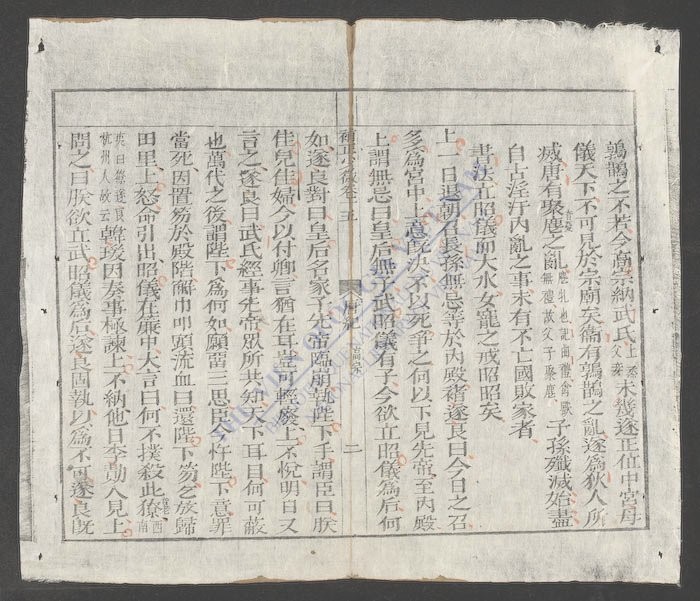 鶉鵲之不若今高宗納武氏上烝父妾未幾遂正位中宮母
儀天下不可見於宗廟矣衞有鶉鵲之亂遂為狄人所
滅唐有聚麀之亂麀牝也記曲禮禽獸無禮故父子聚麀子孫殲滅始盡
自古淫汙內亂之事未有不亡國敗家者
書法立昭儀前大水女寵之戒昭昭矣
上一日退朝召長孫無忌等於內殿褚遂良曰今日之召
多為宮中上意既決不以死爭之何以下見先帝至內殿
上謂無忌曰皇后無子武昭儀有子今欲立昭儀為后何
補正少微卷之五 二
如遂良對曰皇后名家子先帝臨崩執陛下手謂臣曰朕
佳兒佳婦今以付卿言猶在耳豈可輕廢上不悅明日又
言之遂良曰武氏經事先帝眾所共知天下耳目何可蔽
也萬代之後謂陛下為何如願留三思臣今忤陛下意罪
當死因置笏於殿階解巾叩頭流血曰還陛下笏乞放歸
田里上怒命引出昭儀在簾中大言曰何不撲殺此獠西南
夷曰獠遂良杭州人故云韓瑗因奏事極諫上不納他日李勣入見上
問之曰朕欲立武昭儀為后遂良固執以為不可遂良既